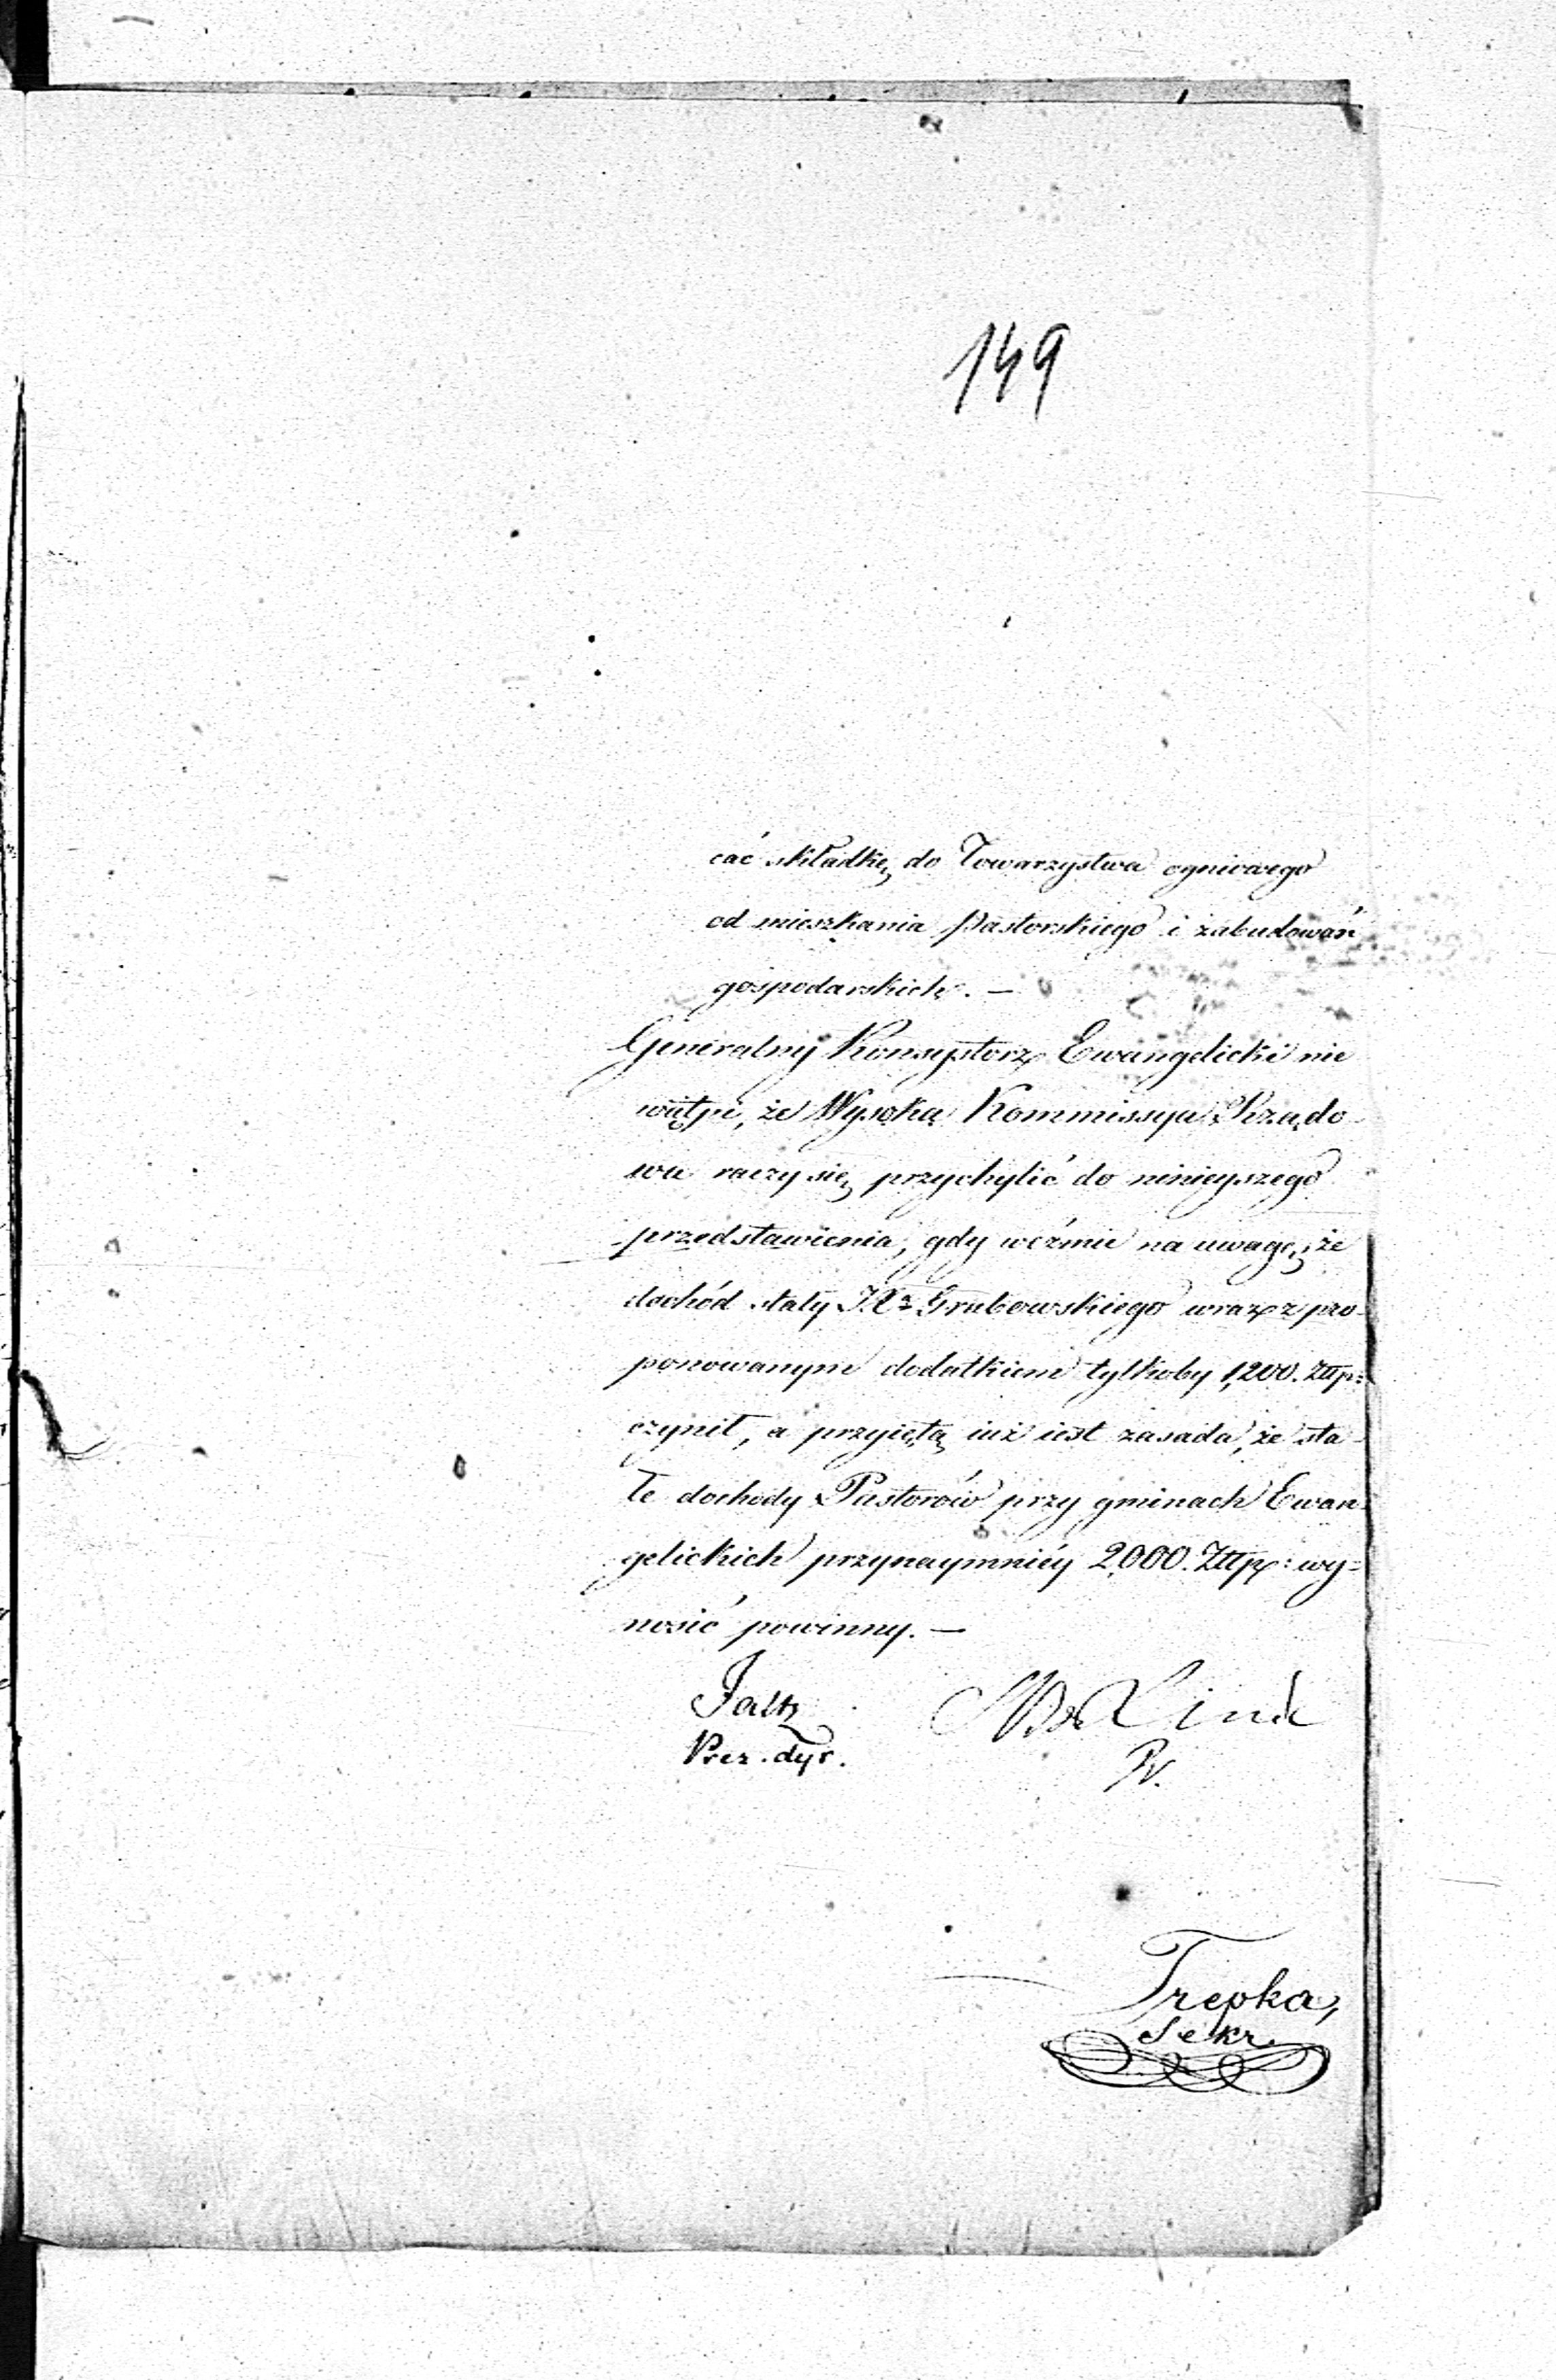 149
cać składkę do Towarzystwa ogniowego
od mieszkania Pastorskiego i zabudowań
gospodarskich. —
Generalny Konsystorz Ewangelicki nie
wątpi, że Wysoka Kommissya Rządo-
wa raczy się przychylić do ninieyszego
przedstawienia, gdy weźmie na uwagę, że
dochód stały X. Grabowskiego wraz z pro-
ponowanym dodatkiem tylkoby 1,200. Złłp:
czynił, a przyiętą iuż iest zasada, że sta-
łe dochody Pastorów przy gminach Ewan-
gelickich przynaymniéy 2,000. Złłp: wy=
nosić powinny. —
Linde
Prez. dyr.
Trepka,
Sekr.